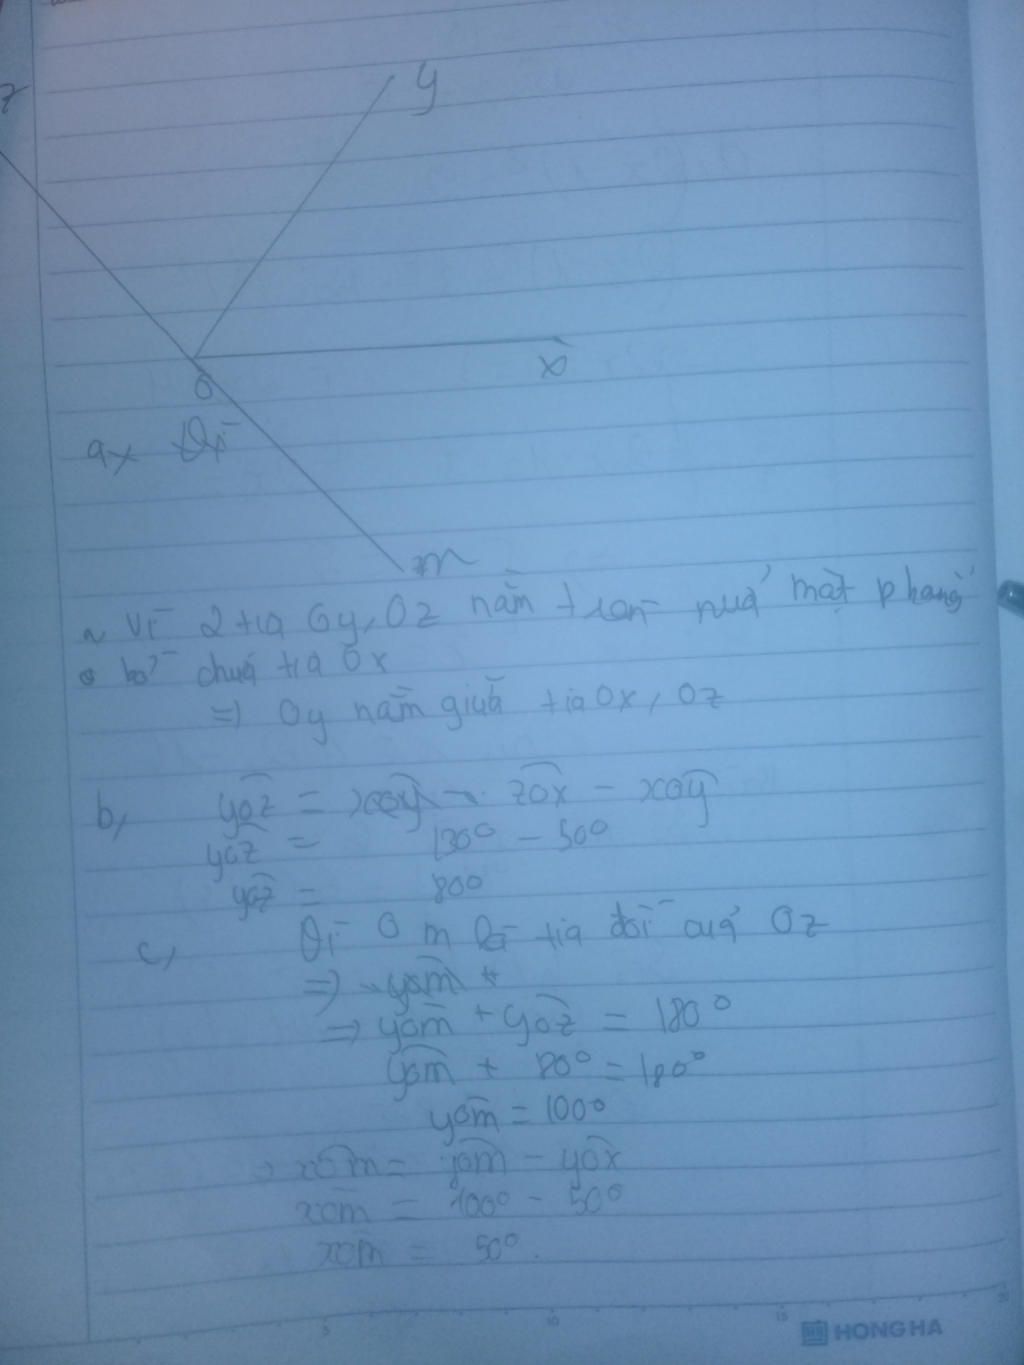 z
y
x
O
a,
m
a, Vì 2 tia Oy, Oz nằm trên nửa mặt phẳng
bờ chứa tia Ox
=> Oy nằm giữa tia Ox, Oz
b, yOz = xOy zOx - xOy
yOz = 130° - 50°
yOz = 80°
c, Vì Om là tia đối của Oz
=> yOm +
=> yOm + yOz = 180°
yOm + 80° = 180°
yOm = 100°
xOm = yOm - yOx
xOm = 100° - 50°
xOm = 50°.
5 10 15 20
HONG HA